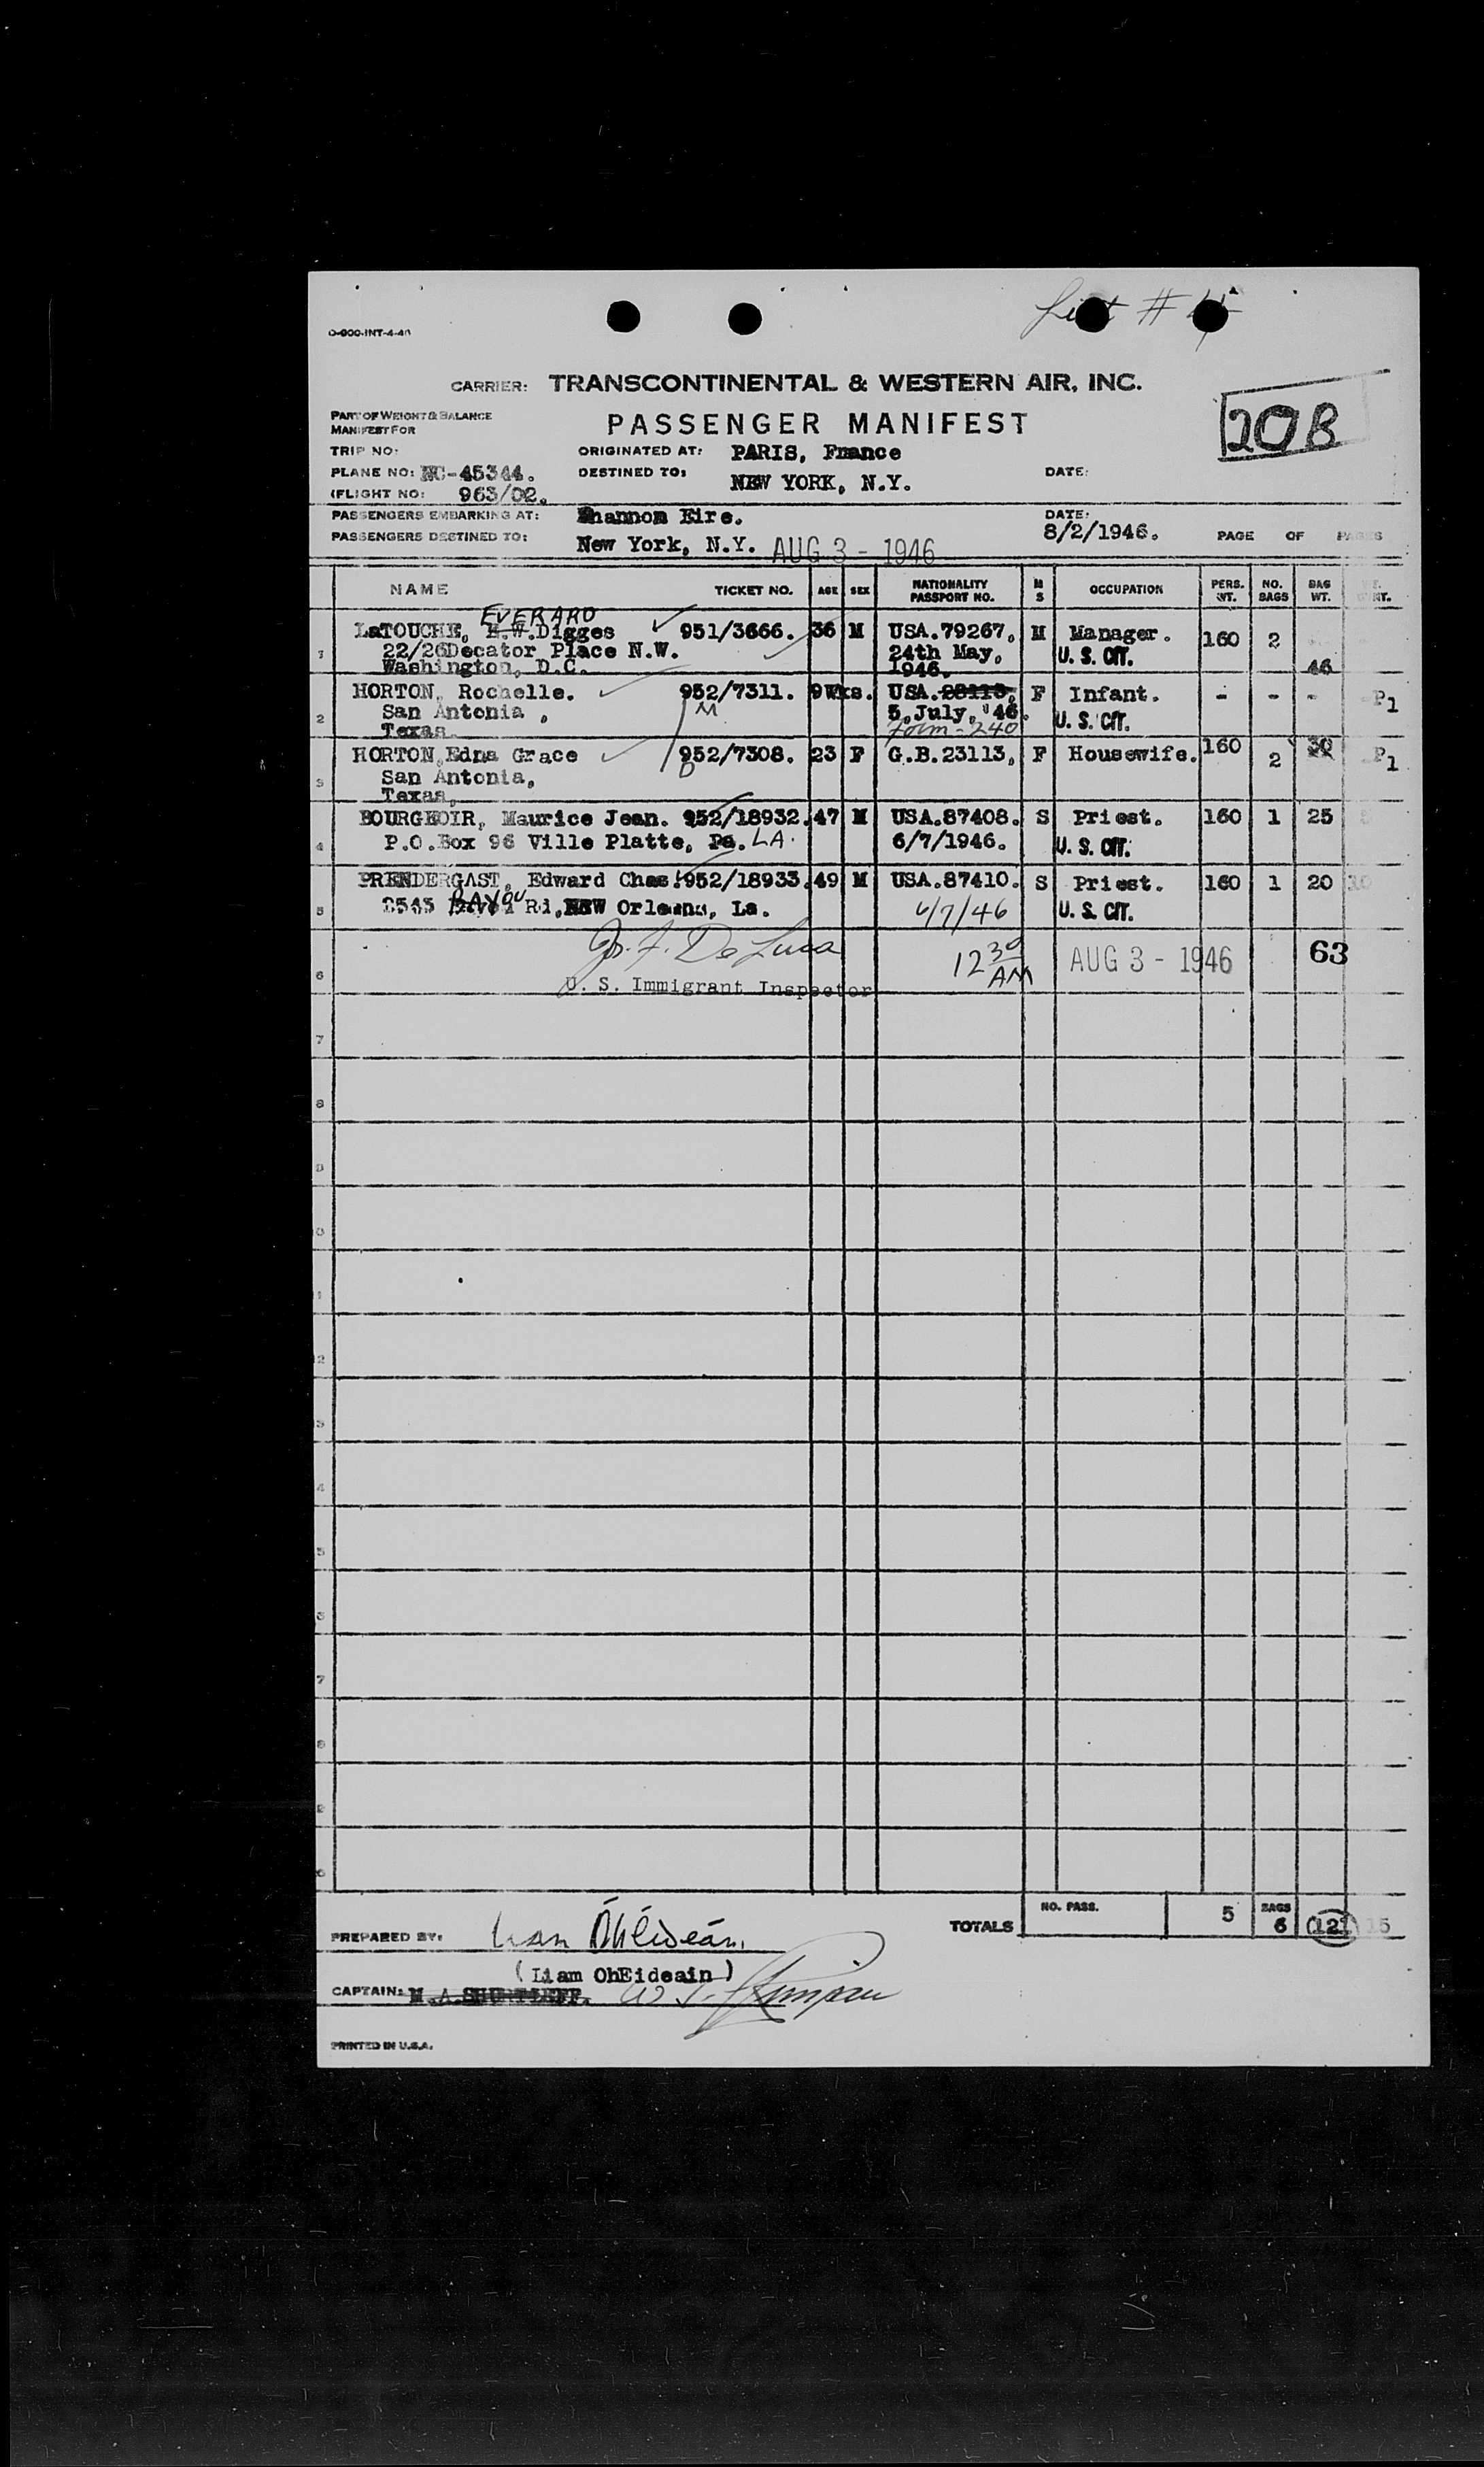 List # 4
O-900-INT-4-46
CARRIER: TRANSCONTINENTAL & WESTERN AIR, INC.
PART OF WEIGHT & BALANCE
MANIFEST FOR
PASSENGER MANIFEST
20B
TRIP NO:
ORIGINATED AT: PARIS, France
PLANE NO: NC-45344.
DESTINED TO: NEW YORK, N.Y.
DATE:
(FLIGHT NO: 963/02.
PASSENGERS EMBARKING AT: Shannon Eire.
DATE: 8/2/1946.
PASSENGERS DESTINED TO: New York, N.Y. AUG 3 - 1946
PAGE OF PAGES
NAME TICKET NO. AGE SEX NATIONALITY PASSPORT NO. M S OCCUPATION PERS. WT. NO. BAGS BAG WT.
EVERARD
1 LaTOUCHE, E.W.Digges 951/3666. 36 M USA.79267, M Manager. 160 2
22/26Decator Place N.W. 24th May, U. S. CIT.
Washington, D.C. 1946. 46
HORTON, Rochelle. 952/7311. 9Wks. USA.23113, F Infant. - - - P1
2 San Antonia , M 5,July, '46. U. S. CIT.
Texas. Form-240
HORTON,Edna Grace 952/7308. 23 F G.B.23113, F Housewife. 160 2 30 P1
3 San Antonia, D
Texas,
BOURGEOIR, Maurice Jean. 952/18932. 47 M USA.87408. S Priest. 160 1 25
4 P.O.Box 96 Ville Platte, Pa. LA. 6/7/1946. U. S. CIT.
PRENDERGAST, Edward Chas. 952/18933. 49 M USA.87410. S Priest. 160 1 20 10
BAYOU
5 2545 Rd,NEW Orleans, La. 6/7/46 U. S. CIT.
Jos. F. De Luca 12 30 AM AUG 3 - 1946 63
6 U. S. Immigrant Inspector
7
8
9
0
1
2
3
4
5
6
7
8
9
0
TOTALS NO. PASS. 5 BAGS 6 121 15
PREPARED BY: Liam ÓhÉideáin
(Liam OhEideain)
CAPTAIN: M.A.SHURTLEFF.
PRINTED IN U.S.A.